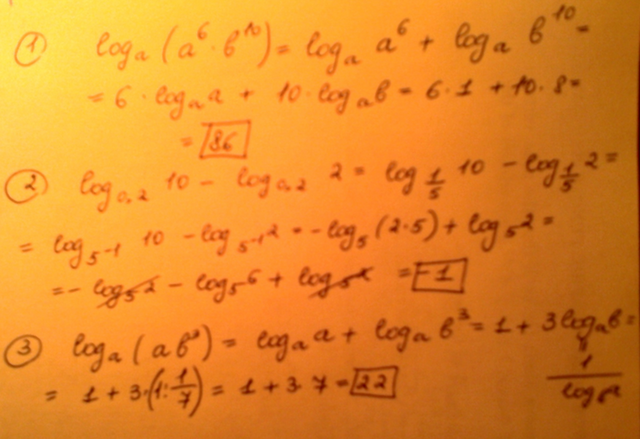 ① logₐ (a⁶ · b¹⁰) = logₐ a⁶ + logₐ b¹⁰ =
= 6 · logₐ a + 10 · logₐ b = 6 · 1 + 10 · 8 =
= 86
② log₀,₂ 10 - log₀,₂ 2 = log_{1/5} 10 - log_{1/5} 2 =
= log_{5⁻¹} 10 - log_{5⁻¹} 2 = - log₅ (2·5) + log₅ 2 =
= - log₅ 2 - log₅ 6 + log₅ 2 = -1
③ logₐ (ab³) = logₐ a + logₐ b³ = 1 + 3 logₐ b =
= 1 + 3·(1:1/7) = 1 + 3·7 = 22
1/log_b a